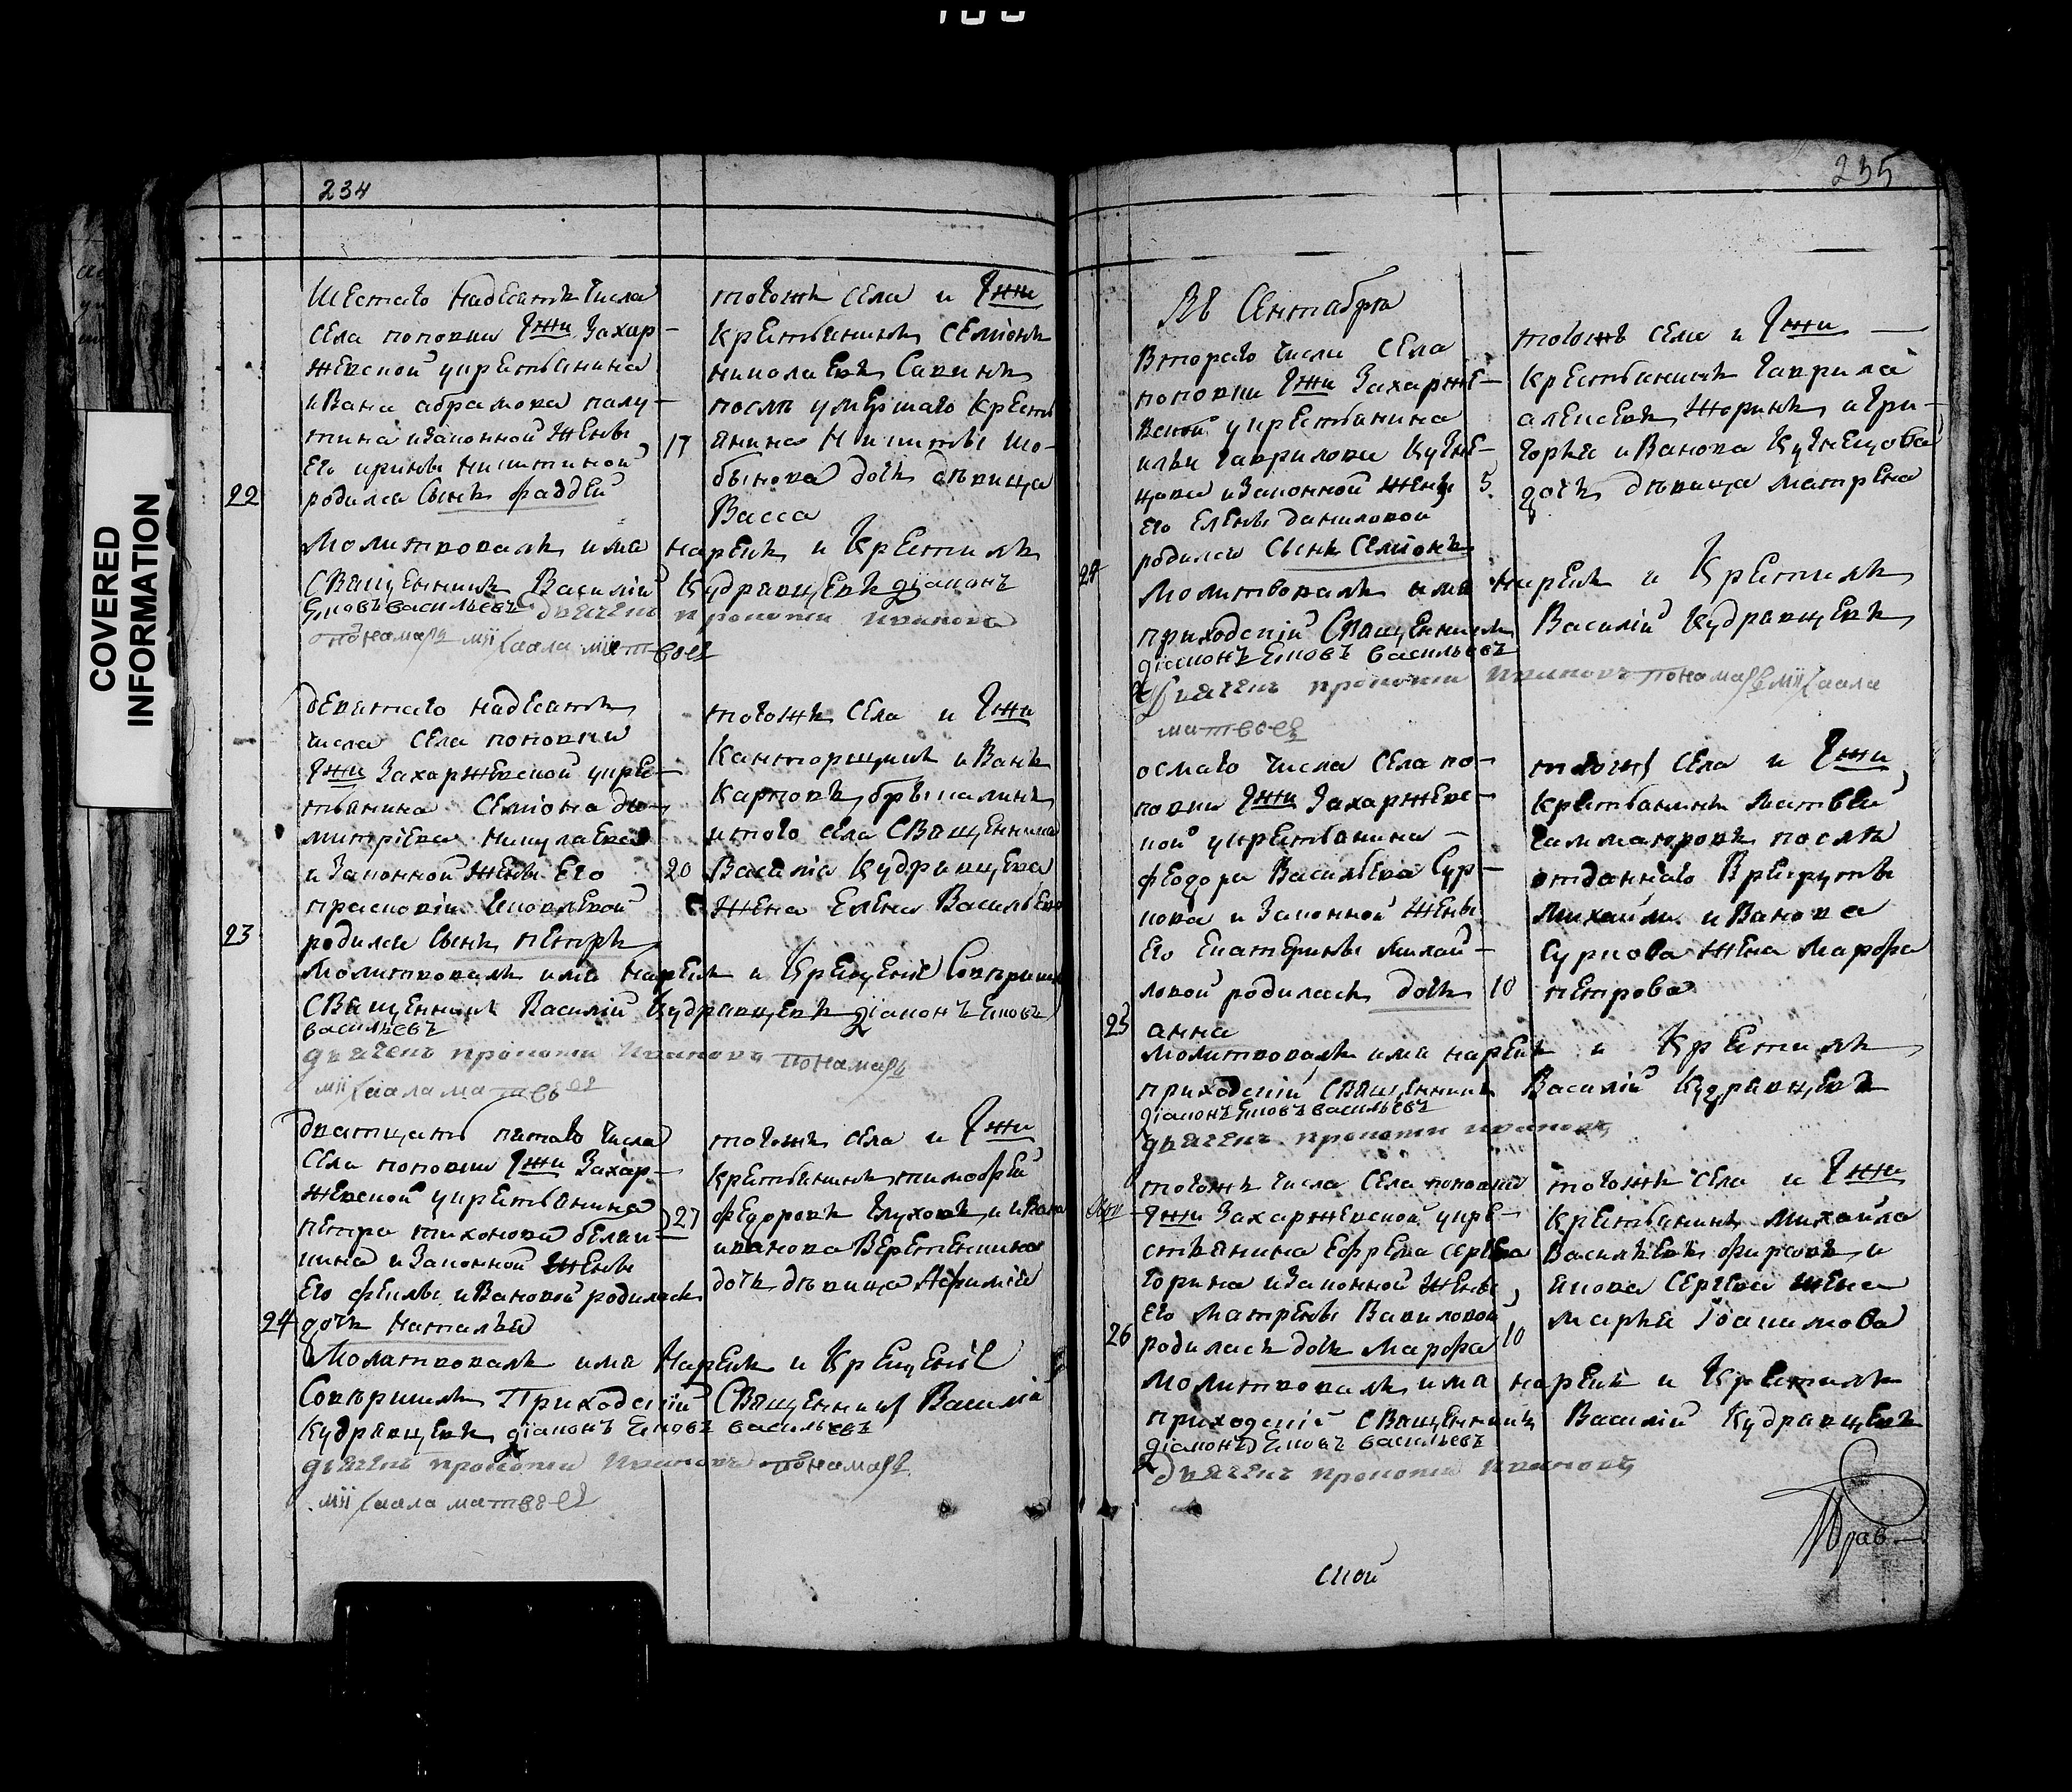 COVERED
INFORMATION
234
Шестаго надесять числа
села поповки Гжи Захар-
жевской у крестьянина
ивана абрамова палу-
тина и законной жены
его ирины никитиной
22 родился сынъ фаддей
17
тогожъ села и Гжи
крестьянинъ семіонъ
николаевъ Савинъ
послѣ умершаго крестъ
янина Никиты шо-
бынова дочь дѣвица
Васса
Молитвовалъ имя нарекъ и Крестилъ
Священникъ Василій Кудрявцевъ діаконъ
Ековъ васильевъ дьячекъ прокопи иванова
пономарь михаала матвоев
девятаго надесять
числа села поповки
Гжи Захаржевской у кре-
тьянина семіона ди-
митріева никулаева
и законной жены его
прасковіи Яковлевой
23 родился сынъ петръ
20
тогожъ села и Гжи
Канторщикъ иванъ
Карповъ брыкалинъ
и того села Священника
Василіа Кудрявцева
жена Елена Василева
Молитвовалъ имя нарекъ и Крещеніе Совершилъ
Священникъ Василій Кудрявцевъ діаконъ Ековъ
васильевъ
дьячекъ прокопи Ивановъ пономарь
михаала матвоев
дватцать пятаго числа
Села поповки Гжи Захар-
жевской у крестьянина
петра тихонова белки-
нина и законной жены
его феклы ивановой родилась
24 дочь Наталья
27
тогожъ села и Гжи
крестьянинъ тимофей
федоровъ Глуховъ, и ивана
иванова Веретенника
дочь дѣвица Афимія
Молитвовалъ имя Нарекъ и Крещеніе
Совершилъ Приходскій Священникъ Василій
Кудрявцевъ діаконъ Ековъ васильевъ
дьячекъ прокопи Ивановъ пономарь
михаала матвоев
235
Въ Сентября
Втораго числа Села
поповки Гжи Захарже-
вской у крестьянина
ильи гаврилова Кузне-
цова и законной жены
его елены даниловой
родился сынъ Семіонъ
5
тогожъ села и Гжи
крестьянинъ Гаврила
алексеевъ Жоринъ, и Гри-
горья иванова Кузнецова
дочь дѣвица матрена
Молитвовалъ имя нарекъ и Крестилъ
приходскій Священникъ Василій Кудрявцевъ
діаконъ Ековъ васильевъ
Дьячекъ прокопи Ивановъ пономарь михаала
матвоев
осмаго числа Села по-
повки Гжи Захаржевс-
кой у крестьянина
феодора Васильева Сур-
кова и законной жены
его Екатерины михай-
ловой родилась дочь
25 анна
10
тогожъ села и Гжи
крестьянинъ матвей
послѣ
отданнаго Врекруты
михайлы иванова
Суркова жена Марфа
петрова
Молитвовалъ имя нарекъ и Крестилъ
приходскій Священникъ Василій Кудрявцевъ
діаконъ Ековъ васильевъ
дьячекъ прокопи ивановъ
тогожъ числа Села поповки
Гжи Захаржевской у кре-
стьянина Ефрема сергева
горина и законной жены
его матрены Вавиловой
26 родилась дочь Марфа
10
тогожъ села и Гжи
крестьянинъ михайла
Васильевъ фирсовъ, и
якова Сергева жена
Марья Іоакимова
Молитвовалъ имя нарекъ и Крестилъ
приходскій Священникъ Василій Кудрявцевъ
діаконъ Ековъ васильевъ
дьячекъ прокопи ивановъ
ской